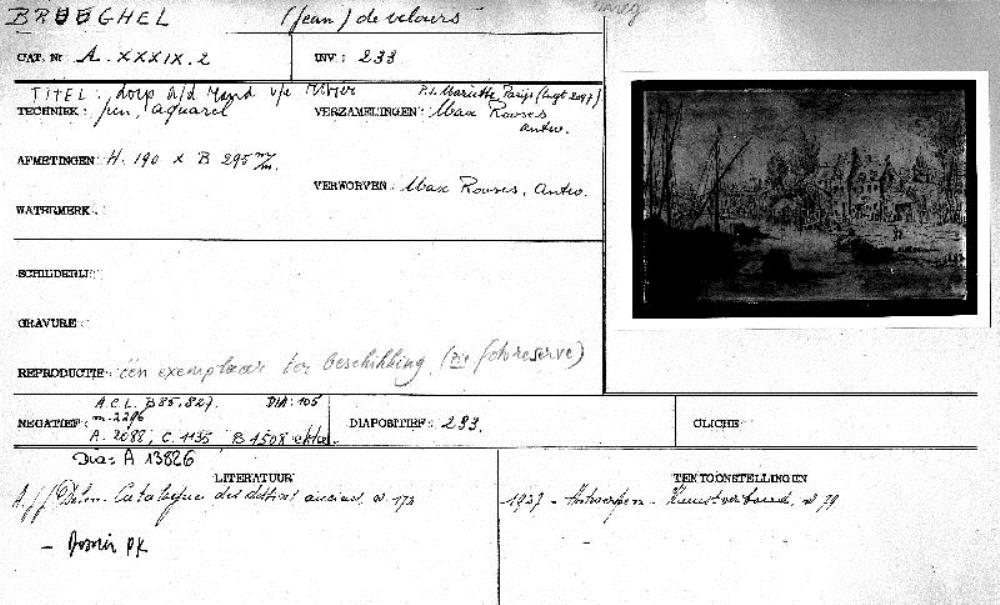 BRUEGHEL (Jean) de velours
CAT. Nr A. XXXIX. 2
INV: 233
TITEL: dorp a/d rand v/e rivier
TECHNIEK: pen, aquarel
P.J. Mariette Parijs (Lugt 2097)
VERZAMELINGEN: Max Rooses
Antw.
AFMETINGEN H. 190 x B 295 m/m.
VERWORVEN: Max Rooses, Antw.
WATERMERK:
SCHILDERIJ:
GRAVURE:
REPRODUCTIE: één exemplaar ter beschikking (zie fotoreserve)
NEGATIEF: A.C.L. B85,827. DIA: 105
m-2296
A. 2088, C. 1135 B 1508 ekta.
Dia: A 13826
DIAPOSITIEF: 233.
CLICHE:
LITERATUUR
A.J.J. Delen. Catalogue des dessins anciens, n. 173
- Dossier PK
TENTOONSTELLINGEN
1927 - Antwerpen - Kunstverbond, n 79